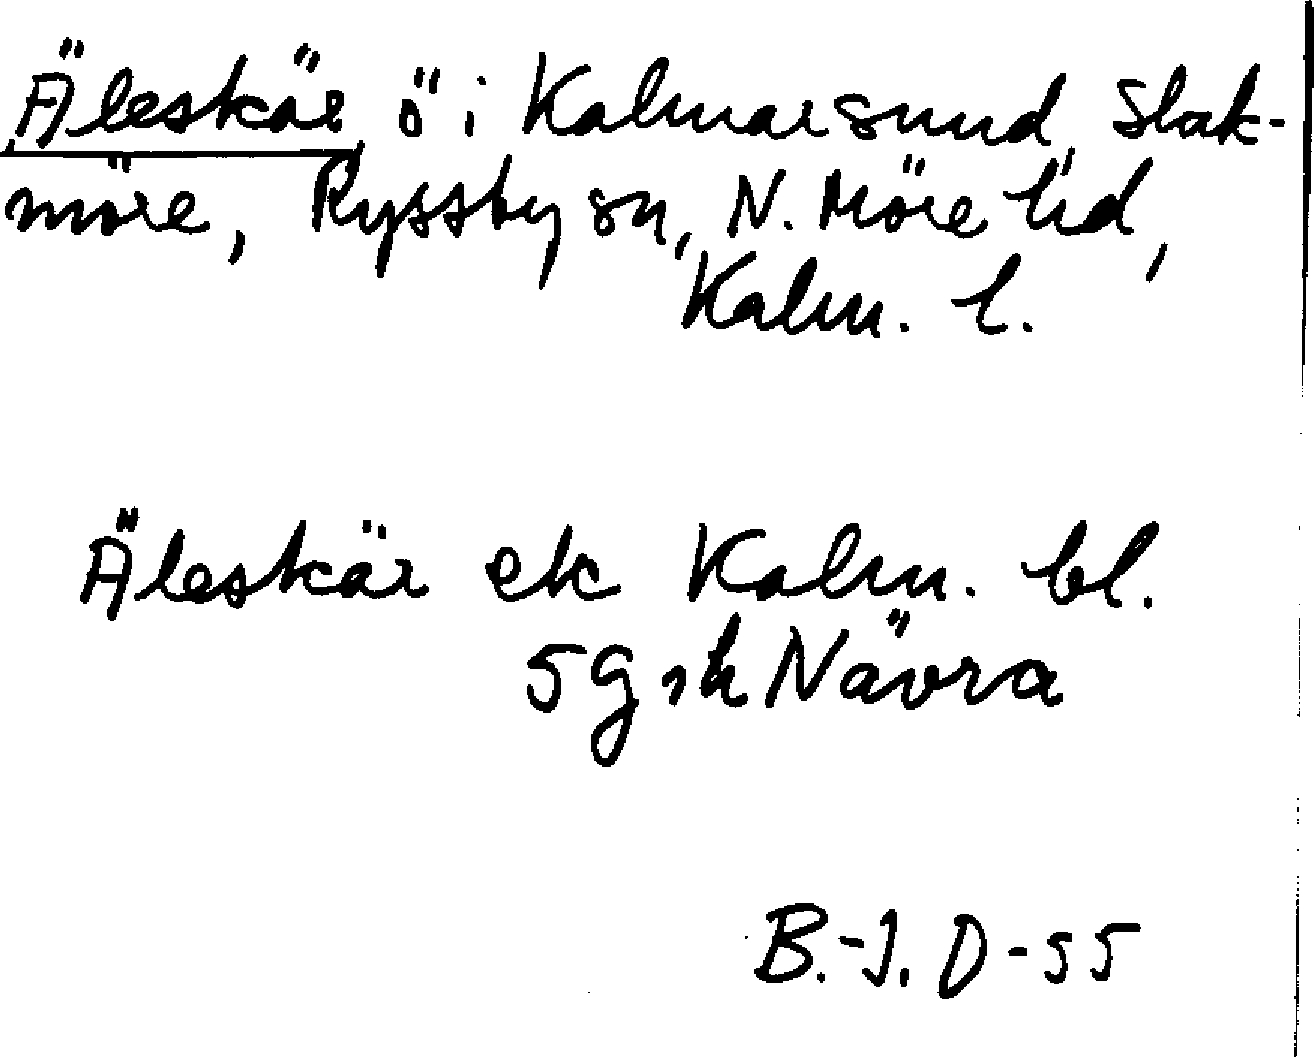 Äleskär, ö i Kalmarsund, Slak-
möre, Ryssby sn, N. Möre hd,
Kalm. l.
Äleskär ek Kalm. bl.
5 g sh Nävra
B.-J. D -55